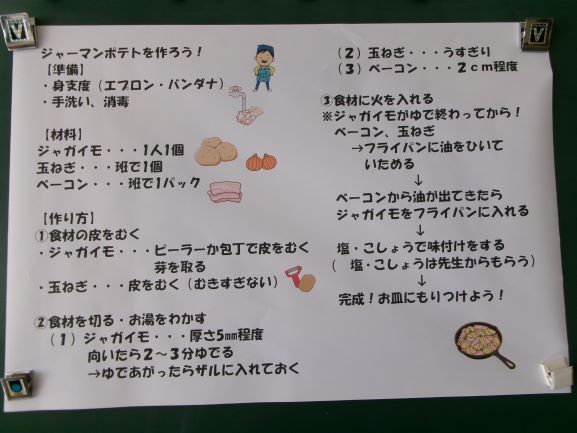 ジャーマンポテトを作ろう！
【準備】
・身支度（エプロン・バンダナ）
・手洗い、消毒
【材料】
ジャガイモ・・・1人1個
玉ねぎ・・・班で1個
ベーコン・・・班で1パック
【作り方】
①食材の皮をむく
・ジャガイモ・・・ピーラーか包丁で皮をむく
芽を取る
・玉ねぎ・・・皮をむく（むきすぎない）
②食材を切る・お湯をわかす
（１）ジャガイモ・・・厚さ5㎜程度
向いたら２～３分ゆでる
→ゆであがったらザルに入れておく
（２）玉ねぎ・・・うすぎり
（３）ベーコン・・・２ｃｍ程度
③食材に火を入れる
※ジャガイモがゆで終わってから！
ベーコン、玉ねぎ
→フライパンに油をひいて
いためる
↓
ベーコンから油が出てきたら
ジャガイモをフライパンに入れる
↓
塩・こしょうで味付けをする
（　塩・こしょうは先生からもらう）
↓
完成！お皿にもりつけよう！